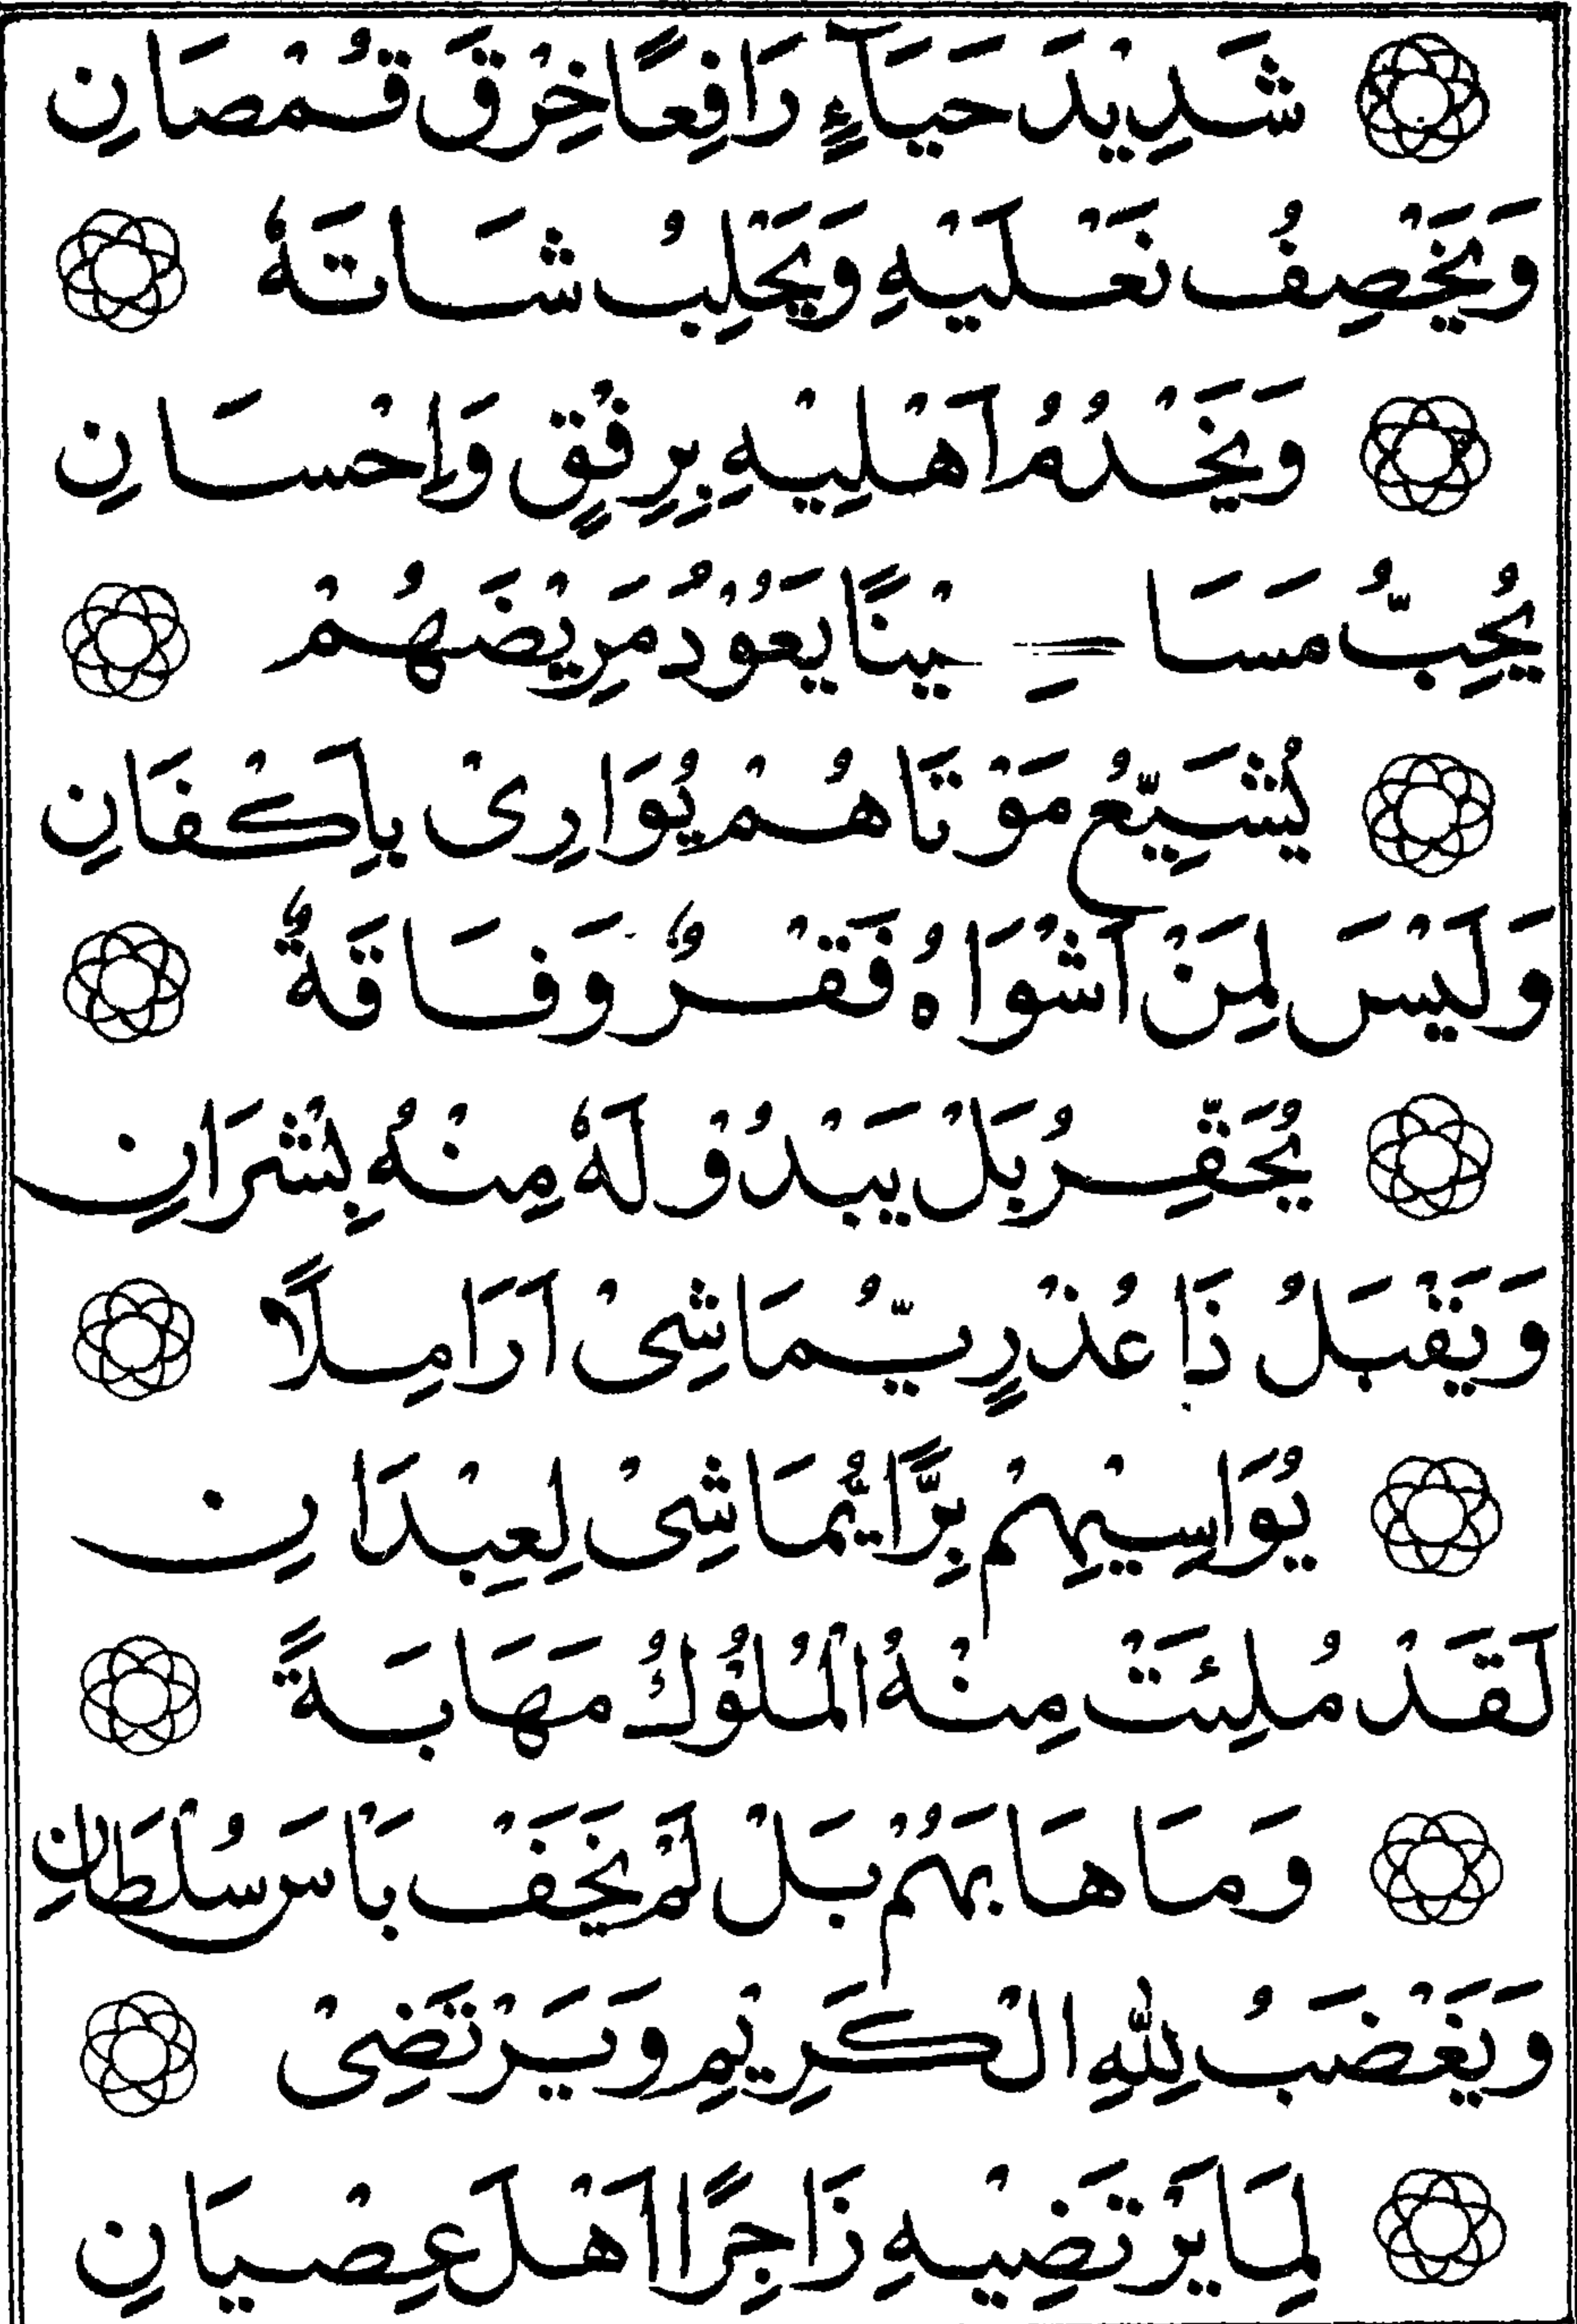 شَدِيْدَ حَيَآءٍ رَافِعًا خِرْقَ قُمْصَانِ
وَيَخْصِفُ نَعْلَيْهِ وَيَحْلِبُ شَاتَهٗ
وَيَخْدُمُ اَهْلِيْهِ بِرِفْقٍ وَاِحْسَانِ
يُحِبُّ مَسَاكِيْنًا يَعُوْدُ مَرِيْضَهُمْ
يُشَيِّعُ مَوْتَاهُمْ يُوَارِىْ بِاَكْفَانِ
وَلَيْسَ لِمَنْ اَشْوَاهُ فَقْرٌ وَفَاقَةٌ
يُحَقِّرُ بَلْ يَبْدُوْ لَهٗ مِنْهُ بِشْرَانِ
وَيَقْبَلُ ذَا عُذْرٍ يُّمَاشِىْ اَرَامِلًا
يُوَاسِيْهِمْ بِرًّا يُّمَاشِىْ لِعِبْدَانِ
لَقَدْ مُلِئَتْ مِنْهُ الْمُلُوْكُ مَهَابَةً
وَمَا هَابَهُمْ بَلْ لَمْ يَخَفْ بَاْسَ سُلْطَانِ
وَيَغْضَبُ لِلّٰهِ الْكَرِيْمِ وَيَرْتَضِىْ
لِمَا يَرْتَضِيْهِ زَاجِرًا اَهْلَ عِصْيَانِ